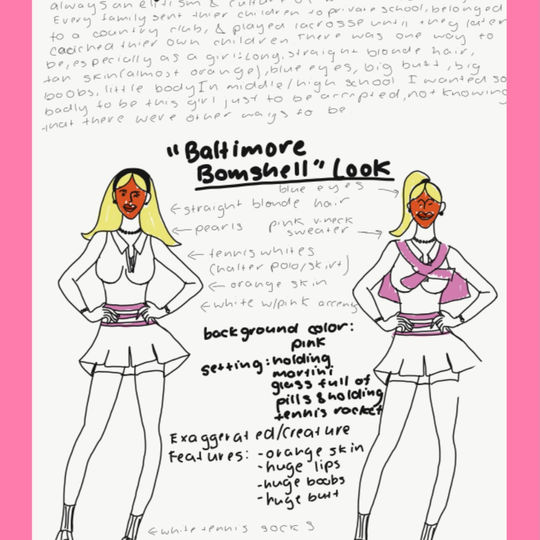 always an elitism & culture of
Every family sent thier children to private school, belonged
to a country club, & played lacrosse until they later
coached thier own children There was one way to
be, especially as a girl: long, straight blonde hair,
tan skin (almost orange), blue eyes, big butt, big
boobs, little body In middle/high school I wanted so
badly to be this girl just to be accepted, not knowing
that there were other ways to be
"Baltimore
Bomshell" Look
blue eyes
straight blonde hair
pearls
pink v-neck
sweater
tennis whites
(halter polo/skirt)
orange skin
white w/pink accents
background color:
pink
setting: holding
martini
glass full of
pills & holding
tennis racket
Exaggerated/creature
Features: -orange skin
-huge lips
-huge boobs
-huge butt
white tennis socks